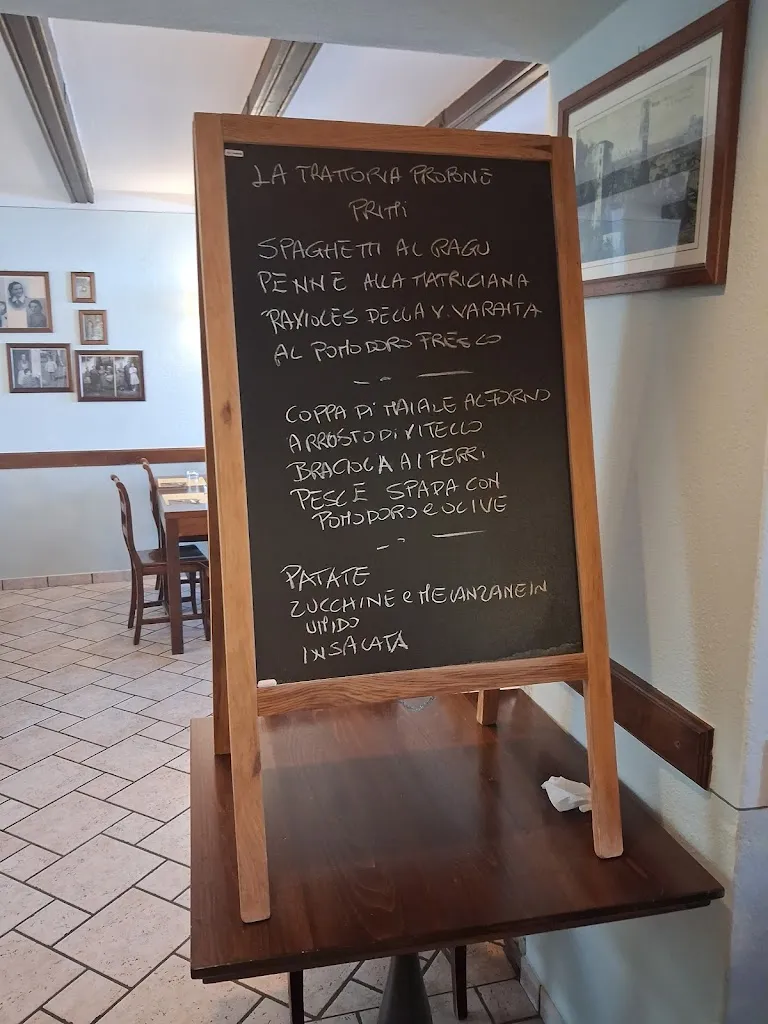 LA TRATTORIA PROPONE
PRIMI
SPAGHETTI AL RAGU
PENNE ALLA MATRICIANA
RAVIOLES DELLA V. VARAITA
AL POMODORO FRESCO
COPPA DI MAIALE AL FORNO
ARROSTO DI VITELLO
BRACIOLA AI FERRI
PESCE SPADA CON
POMODORO e OLIVE
PATATE
ZUCCHINE e MELANZANE IN
UMIDO
INSALATA